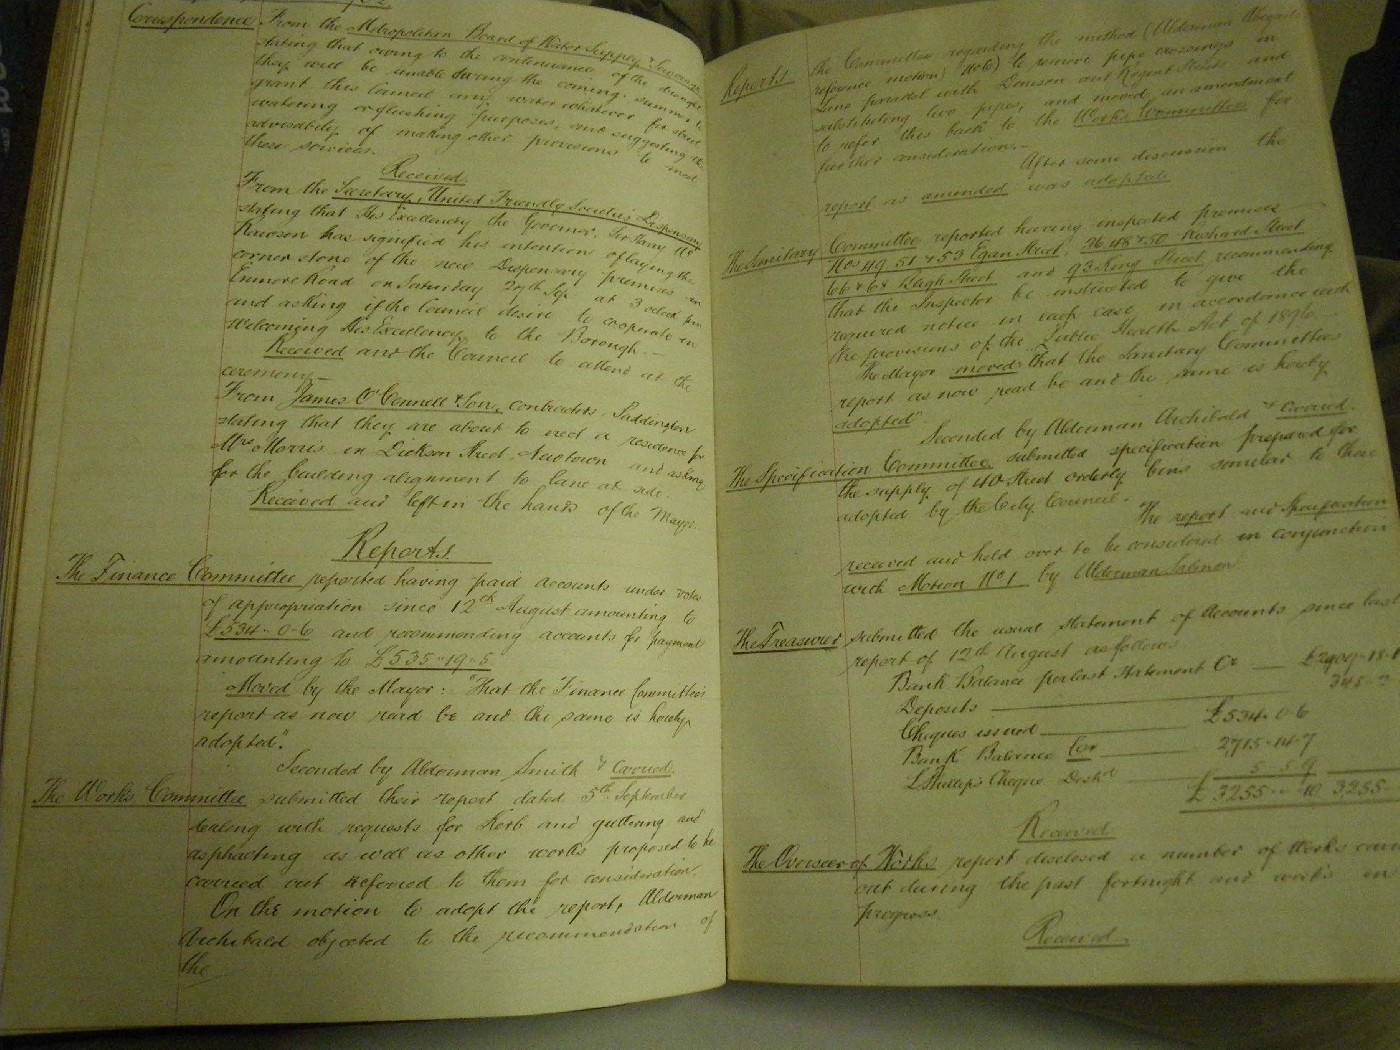 Correspondence From the Metropolitan Board of Water Supply & Sewerage
stating that owing to the continuance of the drought
they will be unable during the coming summer to
grant this Council any water whatever for street
watering or flushing purposes, and suggesting the
advisability of making other provisions to meet
these services.
Received
From the Secretary, United Friendly Societies Dispensary
stating that His Excellency the Governor, Sir Harry H
Rawson has signified his intention of laying the
corner stone of the new Dispensary premises in
Enmore Road on Saturday 27th Sep. at 3 oclock pm
and asking if the Council desire to cooperate in
welcoming His Excellency to the Borough.—
Received and the Council to attend at the
ceremony—
From James O'Connell & Son, contractors, Paddington
stating that they are about to erect a residence for
Mrs Morris in Dickson Street, Newtown and asking
for the building alignment to lane at side.
Received and left in the hands of the Mayor.
Reports.
The Finance Committee reported having paid accounts under votes
of appropriation since 12th August amounting to
£534"0-6 and recommending accounts for payment
amounting to £535"19-5
Moved by the Mayor: "That the Finance Committee's
report as now read be and the same is hereby
adopted".
Seconded by Alderman Smith & Carried.
The Works Committee submitted their report dated 5th September
dealing with requests for kerb and guttering and
asphalting as well as other works proposed to be
carried out referred to them for consideration.
On the motion to adopt the report, Alderman
Archibald objected to the recommendation of
the
Reports. the Committee regarding the method (Alderman
reference motion No 6) to remove pipe crossings in
line parallel with Denison and Regent Streets and
substituting two pipes, and moved an amendment
to refer this back to the Works Committee for
further consideration.—
After some discussion the
report as amended was adopted
The Sanitary Committee reported having inspected premises
Nos 49, 51 & 53 Egan Street, 36, 48 & 50 Richard Street
66 & 68 Leigh Street and 93 King Street recommending
that the Inspector be instructed to give the
required notice in each case in accordance with
the provisions of the Public Health Act of 1896
The Mayor moved that the Sanitary Committees
report as now read be and the same is hereby
adopted"
Seconded by Alderman Archibald & Carried.
The Specification Committee submitted specification prepared for
the supply of 40 Street orderly bins similar to those
adopted by the City Council.
The report and Specification
received and held over to be considered in conjunction
with Motion No 1 by Alderman Salmon
The Treasurer submitted the usual statement of accounts since last
report of 12th August as follows
Bank Balance per last Statement Cr — £2909-18-
Deposits — 345-
Cheques issued — £534-0-6
Bank Balance Cr — 2715-14-7
Phillip's Cheque — 5-5-9
£3255-"-10 3255-
Received
The Overseer of Works report disclosed a number of Works
out during the past fortnight and works in
progress.
Received.